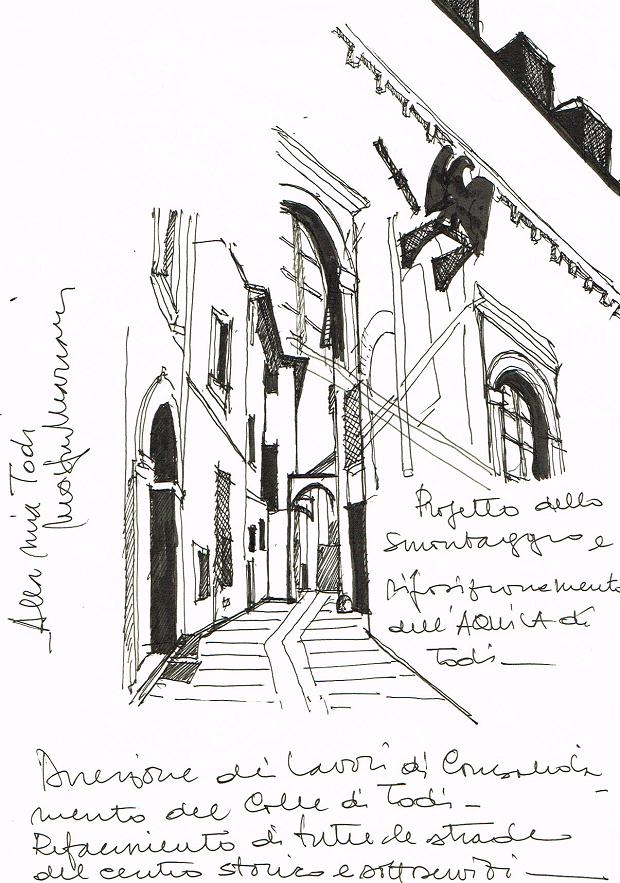 Alla mia Todi
Progetto dello
smontaggio e
riposizionamento
dell'AQUILA di
Todi
Direzione dei lavori di Consolida-
mento del Colle di Todi -
Rifacimento di tutte le strade
del centro storico e sottoservizi